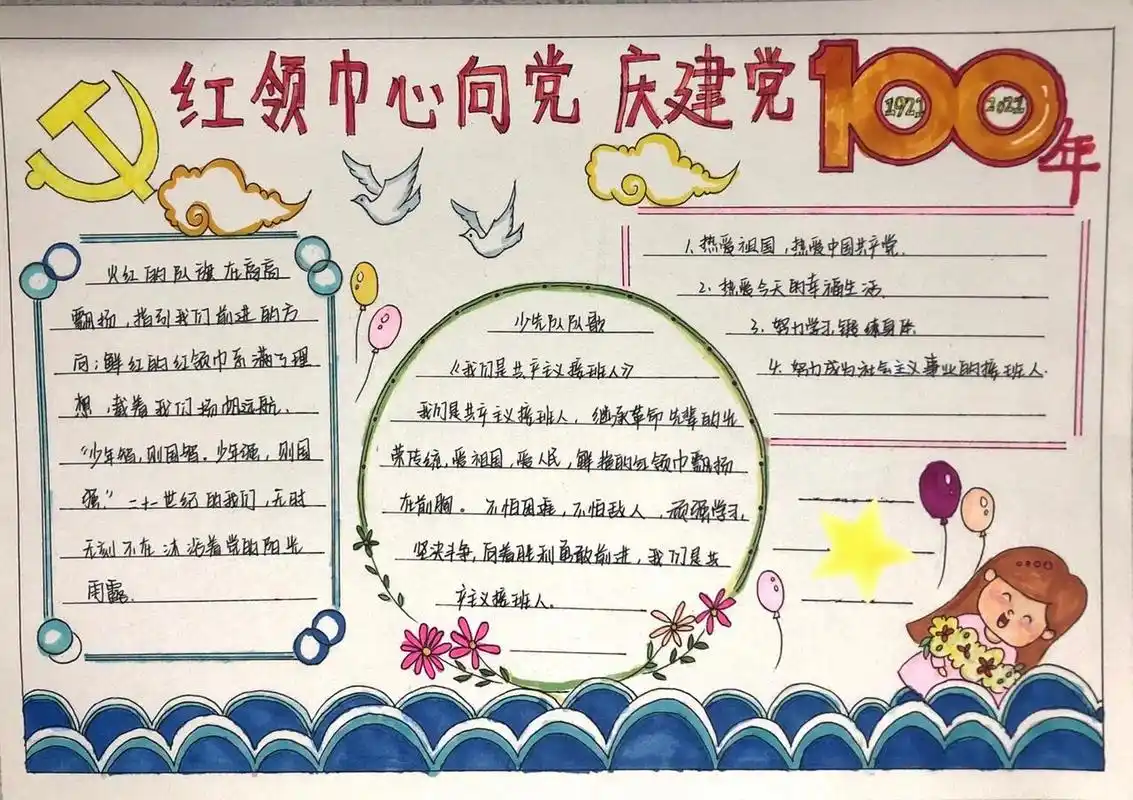 红领巾心向党 庆建党100年
1921 2021
火红的队旗在高高
飘扬，指引我们前进的方
向；鲜红的红领巾系满了理
想，载着我们扬帆远航.
“少年智，则国智. 少年强，则国
强.”二十一世纪的我们，无时
无刻不在沐浴着党的阳光
雨露.
少先队队歌
《我们是共产主义接班人》
我们是共产主义接班人，继承革命先辈的光
荣传统，爱祖国，爱人民，鲜艳的红领巾飘扬
在前胸。不怕困难，不怕敌人，顽强学习，
坚决斗争，向着胜利勇敢前进，我们是共
产主义接班人.
1. 热爱祖国，热爱中国共产党.
2. 热爱今天的幸福生活.
3. 努力学习锻练身体
4. 努力成为社会主义事业的接班人.